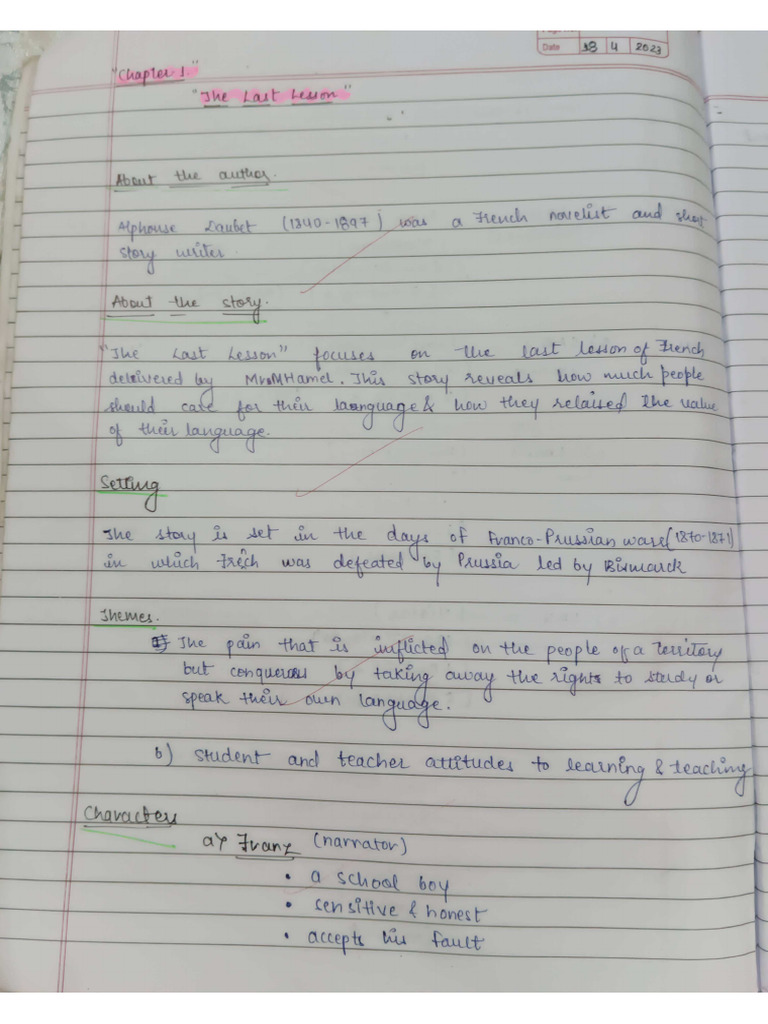 Date 18 4 2023
"Chapter 1."
"The Last Lesson"
About the author.
Alphouse Daubet (1840-1897) was a French novelist and short
story writer.
About the story.
"The Last Lesson" focuses on the last lesson of French
delivered by Mr M Hamel. This story reveals how much people
should care for their language & how they relaised the value
of their language.
Setting
The story is set in the days of Franco-Prussian ware (1870-1871)
in which French was defeated by Prussia led by Bismarck
Themes.
The pain that is inflicted on the people of a territory
but conquerous by taking away the rights to study or
speak their own language.
b) student and teacher attitudes to learning & teaching
Characters
a) Franz (narrator)
• a school boy
• sensitive & honest
• accepts his fault